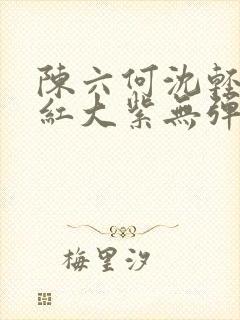 陳六何沈輕
紅大紫無彈
梅里汐